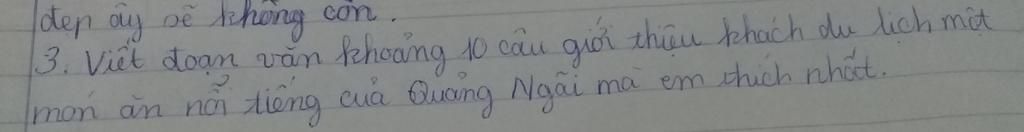 đẹp ấy sẽ không còn.
3. Viết đoạn văn khoảng 10 câu giới thiệu khách du lịch một
món ăn nổi tiếng của Quảng Ngãi mà em thích nhất.